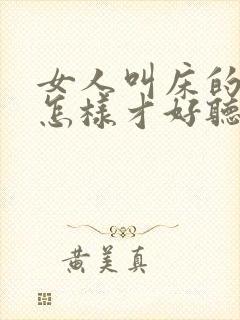 女人叫床的
怎樣才好聽
黄美真